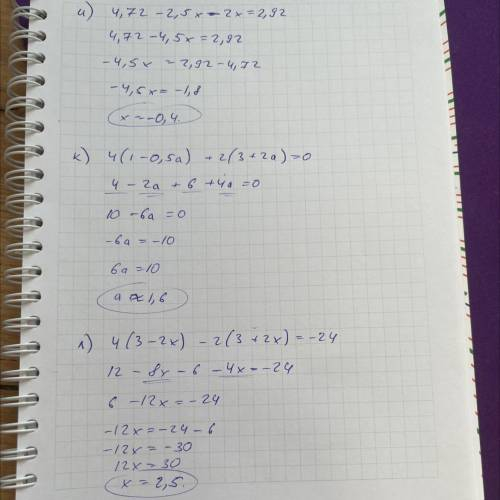 и) 4,72 - 2,5x - 2x = 2,92
4,72 - 4,5x = 2,92
-4,5x = 2,92 - 4,72
-4,5x = -1,8
x = -0,4.
к) 4(1 - 0,5a) + 2(3 + 2a) = 0
4 - 2a + 6 + 4a = 0
10 - 6a = 0
-6a = -10
6a = 10
a ≈ 1,6
л) 4(3 - 2x) - 2(3 + 2x) = -24
12 - 8x - 6 - 4x = -24
6 - 12x = -24
-12x = -24 - 6
-12x = -30
12x = 30
x = 2,5.